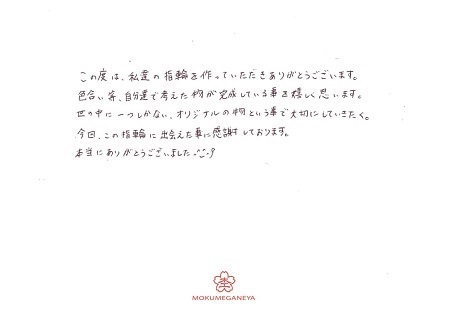 この度は、私達の指輪を作っていただきありがとうございます。
色合い等、自分達で考えた物が完成している事を嬉しく思います。
世の中に一つしかない、オリジナルの物という事で大切にしていきたく。
今回、この指輪に出会えた事に感謝しております。
本当にありがとうございました.^_^.
MOKUMEGANEYA